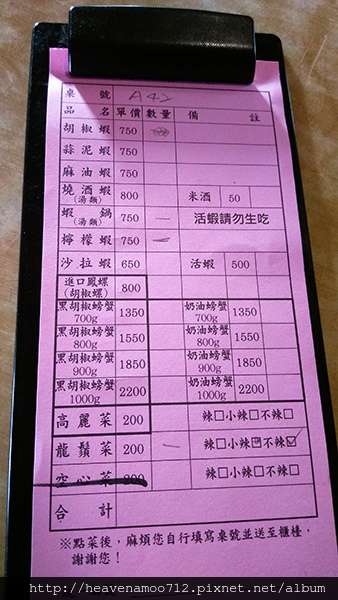 桌號 A42
品名 單價 數量 備註
胡椒蝦 750
蒜泥蝦 750
麻油蝦 750
燒酒蝦 (湯類) 800 米酒 50
蝦鍋 (湯類) 750 一 活蝦請勿生吃
檸檬蝦 750 一
沙拉蝦 650 活蝦 500
進口鳳螺 (胡椒螺) 800
黑胡椒螃蟹 700g 1350 奶油螃蟹 700g 1350
黑胡椒螃蟹 800g 1550 奶油螃蟹 800g 1550
黑胡椒螃蟹 900g 1850 奶油螃蟹 900g 1850
黑胡椒螃蟹 1000g 2200 奶油螃蟹 1000g 2200
高麗菜 200 辣□小辣□不辣□
龍鬚菜 200 一 辣□小辣☑不辣☑
空心菜 200 辣□小辣□不辣□
合計
※點菜後，麻煩您自行填寫桌號並送至櫃檯，
謝謝您！
http://heavenamoo712.pixnet.net/album